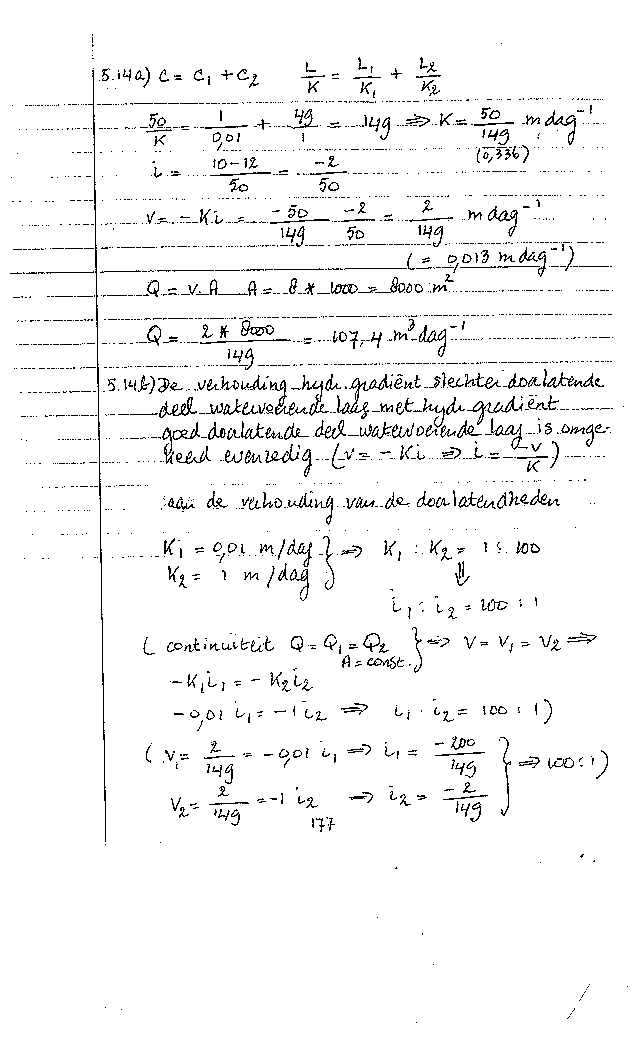 5.14a) C = C₁ + C₂   L/K = L₁/K₁ + L₂/K₂
50/K = 1/0,01 + 49/1 = 149 ⇒ K = 50/149 m dag⁻¹
(0,336)
i = (10-12)/50 = -2/50
V = -Ki = -50/149 · -2/50 = 2/149 m dag⁻¹
( = 0,013 m dag⁻¹)
Q = v.A   A = 8 * 1000 = 8000 m²
Q = 2 * 8000/149 = 107,4 m³ dag⁻¹
5.14b) De verhouding hydr. gradiënt slechter doorlatende
deel watervoerende laag met hydr gradiënt
goed doorlatende deel watervoerende laag is omge-
keerd evenredig (v = -Ki ⇒ i = -v/K)
aan de verhouding van de doorlatendheden
K₁ = 0,01 m/dag } ⇒ K₁ : K₂ = 1 : 100
K₂ = 1 m/dag } ⇓
i₁ : i₂ = 100 : 1
( continuiteit Q = Q₁ = Q₂ } ⇒ V = V₁ = V₂ ⇒
A = const.
-K₁i₁ = -K₂i₂
-0,01 i₁ = -1 i₂ ⇒ i₁ : i₂ = 100 : 1)
( V₁ = 2/149 = -0,01 i₁ ⇒ i₁ = -200/149 } ⇒ 100 : 1)
V₂ = 2/149 = -1 i₂ ⇒ i₂ = -2/149
177